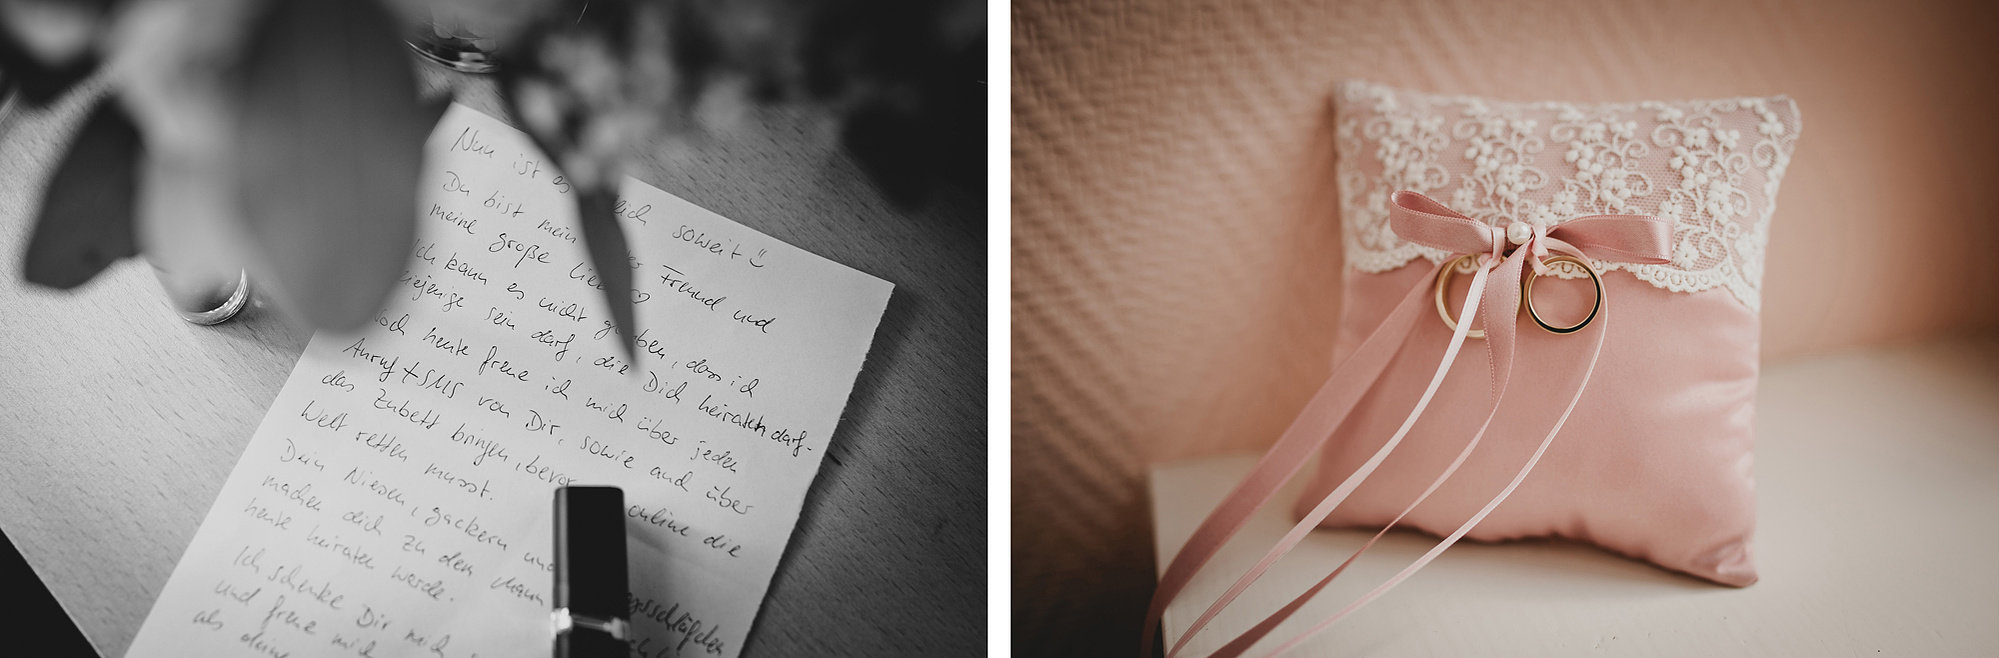 Nun ist es lich soweit
Du bist mein Freund und
meine große Lie
Ich kann es nicht gl ben, dass ich
diejenige sein darf, die Dich heiraten darf.
Noch heute freue ich mich über jeden
Anruf + SMS von Dir, sowie auch über
das Zubett bringen, bevor online die
Welt retten musst.
Dein Niesen, gackern und
machen dich zu dem Mann
heute heiraten werde.
Ich schenke Dir mich
und freue mich
als deine